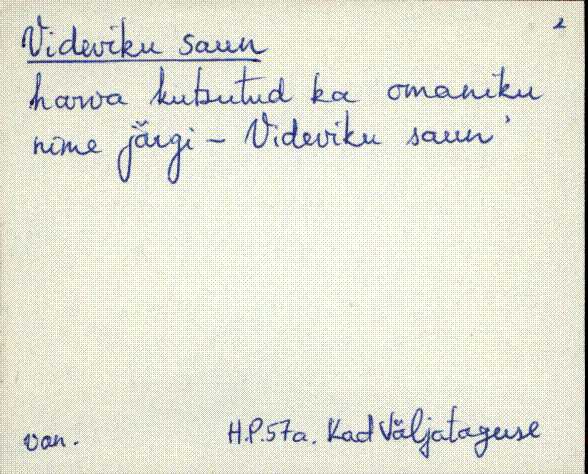 2
Videviku saun
harva kutsutud ka omaniku
nime järgi - Videviku saun'
van. H.P.57a. Kad Väljataguse